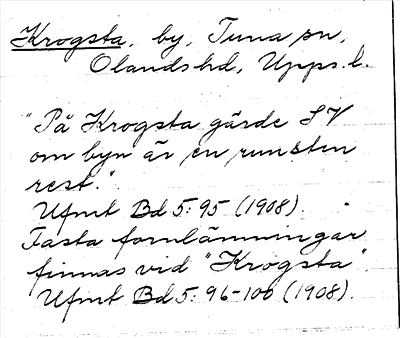 Krogsta, by, Tuna sn,
Olands hd, Upps. l.
"På Krogsta gärde SV
om byn är en runsten
rest."
Ufmt Bd 5: 95 (1908).
Fasta fornlämningar
finnas vid "Krogsta".
Ufmt Bd 5: 96-100 (1908).